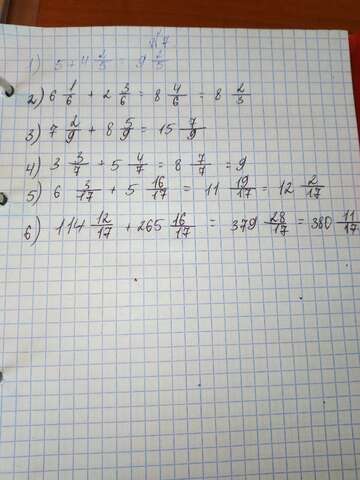 1) 5 + 4 2/5 = 9 2/5
2) 6 1/6 + 2 3/6 = 8 4/6 = 8 2/3
3) 7 2/9 + 8 5/9 = 15 7/9
4) 3 3/7 + 5 4/7 = 8 7/7 = 9
5) 6 3/17 + 5 16/17 = 11 19/17 = 12 2/17
6) 114 12/17 + 265 16/17 = 379 28/17 = 380 11/17